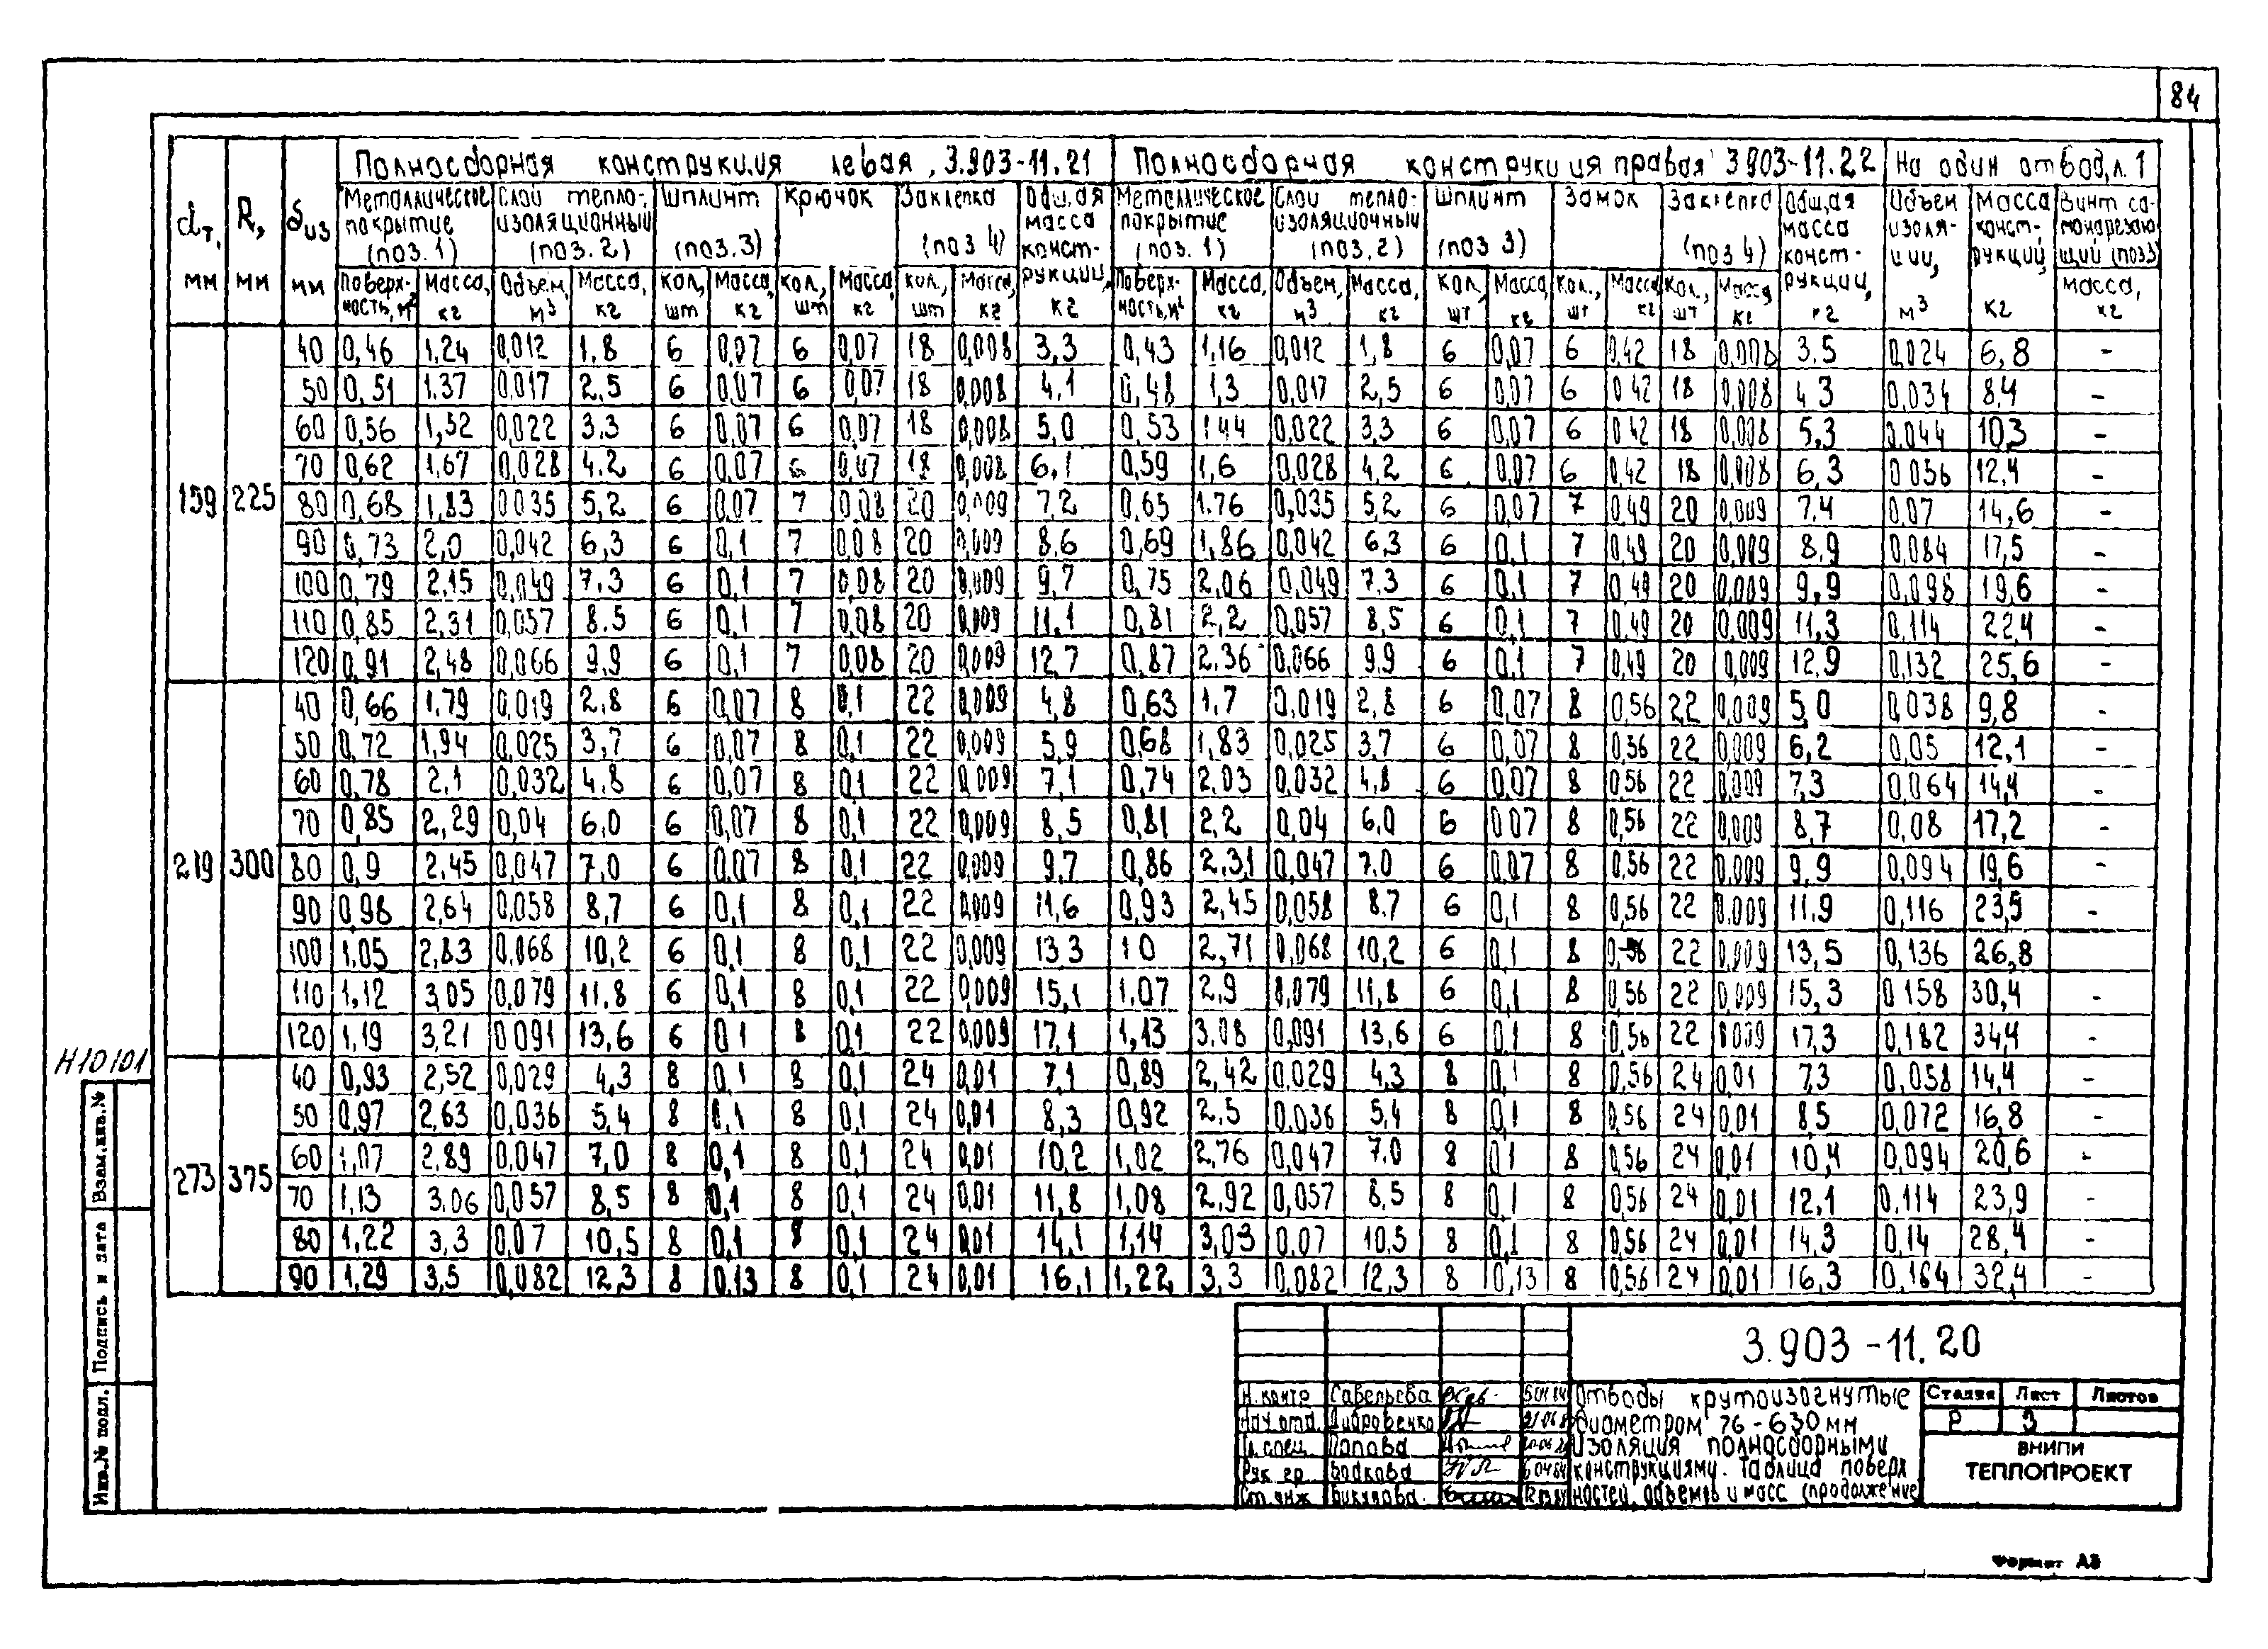 84
Полносборная конструкция левая, 3.903-11.21 Полносборная конструкция правая 3.903-11.22 На один отвод, л. 1
dт, мм R, мм δиз мм Металлическое покрытие (поз. 1) Слой тепло-изоляционный (поз. 2) Шплинт (поз. 3) Крючок Заклепка (поз 4) Общая масса конст-рукции, кг Металлическое покрытие (поз. 1) Слой тепло-изоляционный (поз. 2) Шплинт (поз 3) Замок Заклепка (поз 4) Общая масса конст-рукции, кг Объем изоля-ции, м³ Масса конст-рукций, кг Винт са-монарезаю-щий (поз3) масса, кг
Поверх-ность, м² Масса, кг Объем, м³ Масса, кг Кол, шт Масса, кг Кол., шт Масса, кг Кол, шт Масса, кг Поверх-ность, м² Масса, кг Объем, м³ Масса, кг Кол, шт Масса, кг Кол., шт Масса кг Кол., шт Масса, кг
159 225
40 0,46 1,24 0,012 1,8 6 0,07 6 0,07 18 0,008 3,3 0,43 1,16 0,012 1,8 6 0,07 6 0,42 18 0,008 3.5 0,024 6,8 -
50 0,51 1.37 0,017 2,5 6 0,07 6 0,07 18 0,008 4,1 0,48 1,3 0,017 2,5 6 0,07 6 0 42 18 0,008 4 3 0,034 8,4 -
60 0,56 1,52 0,022 3.3 6 0,07 6 0,07 18 0,008 5,0 0,53 1 44 0,022 3,3 6 0,07 6 0 42 18 0,008 5,3 0,044 10,3 -
70 0,62 1,67 0,028 4.2 6 0,07 6 0,07 18 0,008 6,1 0,59 1,6 0,028 4,2 6 0,07 6 0,42 18 0,008 6,3 0 056 12,4 -
80 0,68 1,83 0 035 5,2 6 0,07 7 0,08 20 0,009 7,2 0,65 1.76 0,035 5,2 6 0,07 7 0,49 20 0,009 7.4 0,07 14,6 -
90 0,73 2,0 0,042 6,3 6 0,1 7 0,08 20 0,009 8,6 0,69 1,86 0,042 6,3 6 0,1 7 0,49 20 0,009 8,9 0,084 17,5 -
100 0,79 2,15 0,049 7,3 6 0,1 7 0,08 20 0,009 9,7 0,75 2,06 0,049 7,3 6 0,1 7 0 49 20 0,009 9,9 0,098 19,6 -
110 0,85 2,31 0,057 8.5 6 0,1 7 0,08 20 0,009 11,1 0,81 2,2 0,057 8,5 6 0,1 7 0,49 20 0,009 11,3 0,114 22,4 -
120 0,91 2,48 0,066 9,9 6 0,1 7 0,08 20 0,009 12,7 0,87 2,36 0,066 9,9 6 0,1 7 0,49 20 0,009 12,9 0,132 25,6 -
219 300
40 0,66 1,79 0,019 2,8 6 0,07 8 0,1 22 0,009 4,8 0,63 1,7 0,019 2,8 6 0,07 8 0,56 22 0,009 5,0 0,038 9,8 -
50 0,72 1,94 0,025 3,7 6 0,07 8 0,1 22 0,009 5,9 0,68 1,83 0,025 3,7 6 0,07 8 0,56 22 0,009 6,2 0,05 12,1 -
60 0,78 2,1 0,032 4,8 6 0,07 8 0,1 22 0,009 7,1 0,74 2,03 0,032 4,8 6 0,07 8 0,56 22 0,009 7,3 0,064 14,4 -
70 0,85 2,29 0,04 6,0 6 0,07 8 0,1 22 0,009 8,5 0,81 2,2 0,04 6,0 6 0,07 8 0,56 22 0,009 8,7 0,08 17,2 -
80 0,9 2,45 0,047 7,0 6 0,07 8 0,1 22 0,009 9,7 0,86 2,31 0,047 7.0 6 0,07 8 0,56 22 0,009 9,9 0,094 19,6 -
90 0,98 2,64 0,058 8,7 6 0,1 8 0,1 22 0,009 11,6 0,93 2,45 0,058 8.7 6 0,1 8 0,56 22 0,009 11.9 0,116 23,5 -
100 1,05 2,83 0,068 10,2 6 0,1 8 0,1 22 0,009 13 3 1 0 2,71 0,068 10,2 6 0,1 8 0,56 22 0,009 13,5 0,136 26,8
110 1,12 3,05 0,079 11,8 6 0,1 8 0,1 22 0,009 15,1 1,07 2,9 0,079 11,8 6 0,1 8 0,56 22 0,009 15,3 0 158 30,4 -
120 1,19 3,21 0 091 13,6 6 0,1 8 0,1 22 0,009 17,1 1,13 3,08 0,091 13,6 6 0,1 8 0,56 22 0 009 17,3 0,182 34,4 -
273 375
40 0,93 2,52 0,029 4,3 8 0,1 8 0,1 24 0,01 7,1 0,89 2,42 0,029 4,3 8 0,1 8 0,56 24 0,01 7,3 0,058 14,4 -
50 0,97 2,63 0,036 5,4 8 0,1 8 0,1 24 0,01 8,3 0,92 2,5 0,036 5,4 8 0,1 8 0,56 24 0,01 8,5 0,072 16,8 -
60 1,07 2,89 0,047 7,0 8 0,1 8 0,1 24 0,01 10,2 1,02 2,76 0,047 7.0 8 0,1 8 0,56 24 0,01 10,4 0,094 20,6 -
70 1,13 3.06 0,057 8,5 8 0,1 8 0,1 24 0,01 11,8 1,08 2,92 0,057 8,5 8 0,1 8 0,56 24 0,01 12,1 0,114 23,9 -
80 1,22 3,3 0,07 10,5 8 0,1 8 0,1 24 0,01 14,1 1,14 3,03 0,07 10,5 8 0,1 8 0,56 24 0,01 14,3 0,14 28,4 -
90 1,29 3,5 0,082 12,3 8 0,13 8 0,1 24 0,01 16,1 1,22 3,3 0,082 12,3 8 0,13 8 0,56 24 0,01 16,3 0,164 32,4 -
Н10101
Взам.инв.№
Подпись и дата
Инв.№ подл.
3.903-11.20
Н.контр Савельева
Нач отд. Шибровенко
Гл спец Попова
Рук гр.
Ст инж
Отводы крутоизогнутые
диаметром 76-630 мм
Изоляция полносборными
конструкциями. Таблица поверх
ностей, объемов и масс (продолжение
Стадия Лист Листов
Р 3
ВНИПИ
ТЕПЛОПРОЕКТ
Формат А3